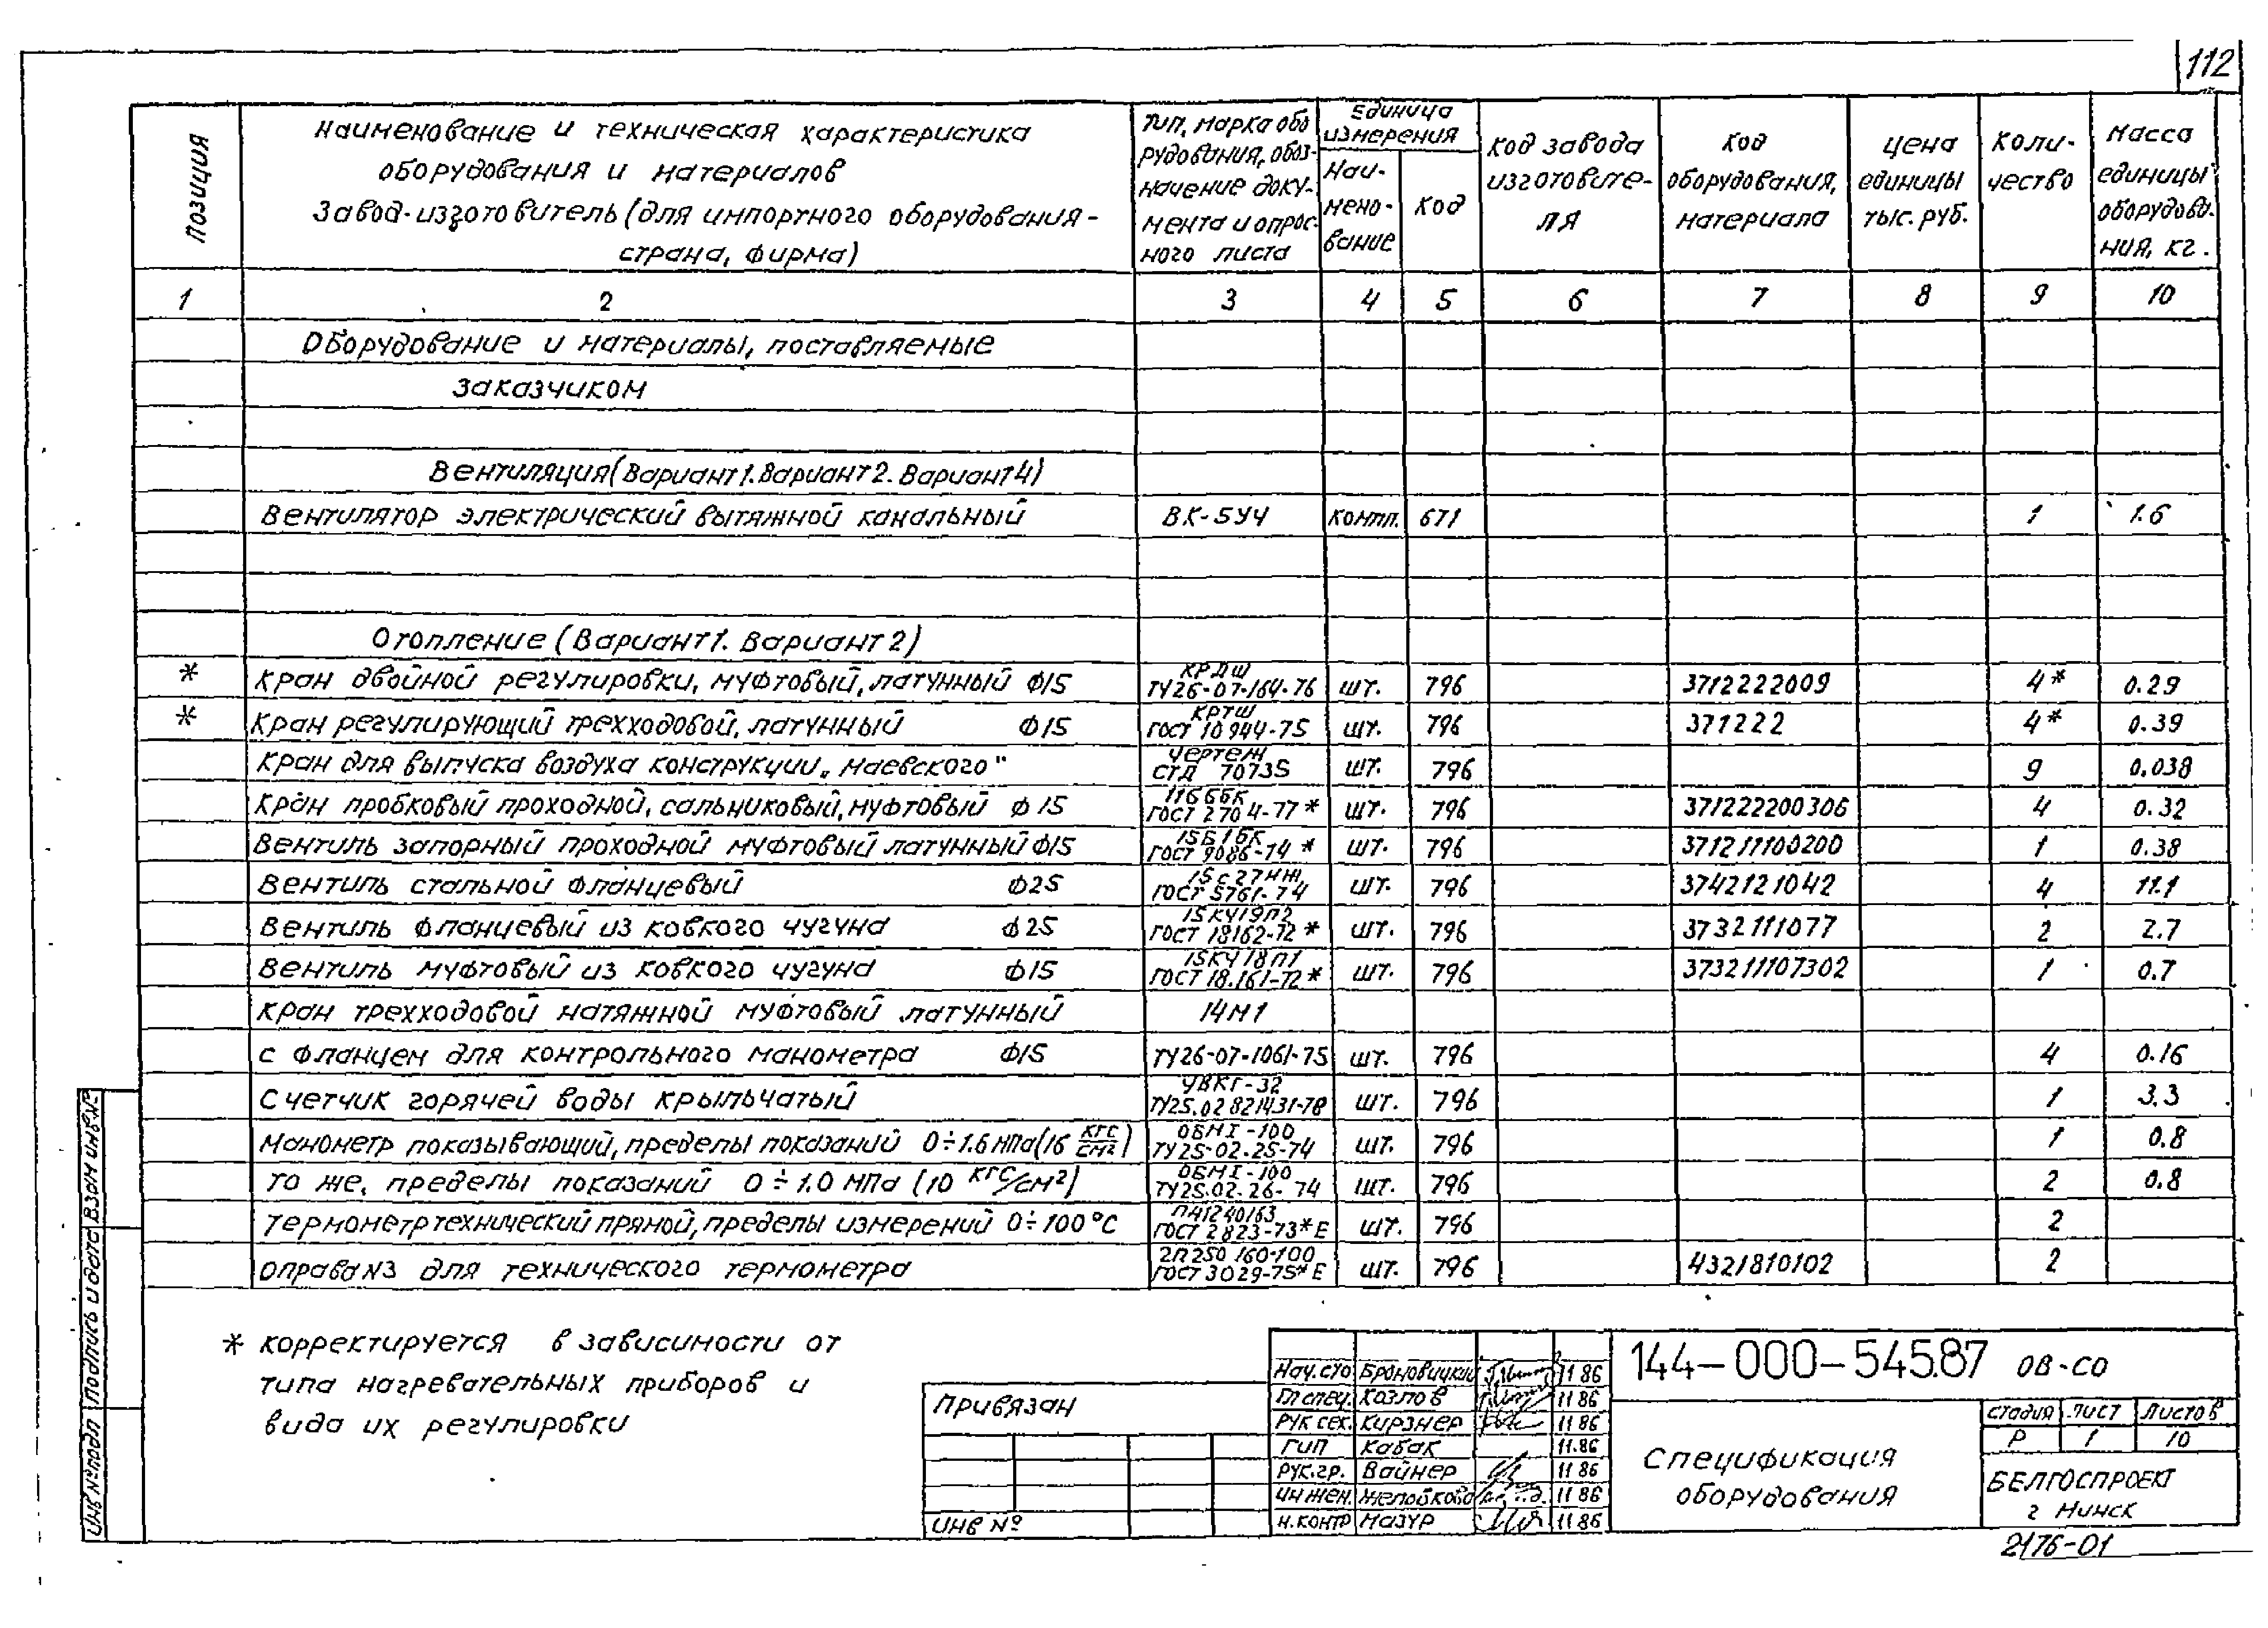 112
Позиция
Наименование и техническая характеристика
оборудования и материалов
Завод-изготовитель (для импортного оборудования -
страна, фирма)
Тип, марка обо
рудования, обоз-
начение доку-
мента и опрос-
ного листа
Единица
измерения
Наи-
мено-
вание
Код
Код завода
изготовите-
ля
Код
оборудования,
материала
Цена
единицы
тыс. руб.
Коли-
чество
Масса
единицы
оборудова-
ния, кг.
1 2 3 4 5 6 7 8 9 10
Оборудование и материалы, поставляемые
заказчиком
Вентиляция (Вариант 1. Вариант 2. Вариант 4)
Вентилятор электрический вытяжной канальный ВК-5У4 компл. 671 1 1.6
Отопление (Вариант 1. Вариант 2)
* Кран двойной регулировки, муфтовый, латунный ф15 КРДШ ТУ26-07-164-76 шт. 796 3712222009 4* 0.29
* Кран регулирующий трехходовой, латунный ф15 КРТШ ГОСТ 10944-75 шт. 796 371222 4* 0.39
Кран для выпуска воздуха конструкции „Маевского" чертеж СТД 7073S шт. 796 9 0.038
Кран пробковый проходной, сальниковый, муфтовый ф15 11б6бк ГОСТ 2704-77* шт. 796 371222200306 4 0.32
Вентиль запорный проходной муфтовый латунный ф15 15Б1бк ГОСТ 9086-74* шт. 796 371211100200 1 0.38
Вентиль стальной фланцевый ф25 15с27нж ГОСТ 5761-74 шт. 796 3742121042 4 11.1
Вентиль фланцевый из ковкого чугуна ф25 15КЧ19П2 ГОСТ 18162-72* шт. 796 3732111077 2 2.7
Вентиль муфтовый из ковкого чугуна ф15 15КЧ18П1 ГОСТ 18.161-72* шт. 796 373211107302 1 0.7
Кран трехходовой натяжной муфтовый латунный 14М1
с фланцем для контрольного манометра ф15 ТУ26-07-1061-75 шт. 796 4 0.16
Счетчик горячей воды крыльчатый УВКГ-32 ТУ25.02 821431-78 шт. 796 1 3.3
Манометр показывающий, пределы показаний 0÷1.6 МПа (16 кгс/см²) ОБМ1-100 ТУ25-02.25-74 шт. 796 1 0.8
То же, пределы показаний 0÷1.0 МПа (10 кгс/см²) ОБМ1-100 ТУ25.02.26-74 шт. 796 2 0.8
Термометр технический прямой, пределы измерений 0÷100°С П41240163 ГОСТ 2823-73*Е шт. 796 2
Оправа N3 для технического термометра 2П250 160-100 ГОСТ 3029-75*Е шт. 796 4321810102 2
* корректируется в зависимости от
типа нагревательных приборов и
вида их регулировки
Инв №подл Подпись и дата Взам инв№
Привязан
Инв №
Нач.сто Броновицкий 11 86
Гл спец. Козлов 11 86
Рук сек. Кирзнер 11 86
ГИП Кабак 11.86
Рук.гр. Вайнер 11 86
Инжен. Желобкова 11 86
Н.контр Мазур 11 86
144-000-545.87 ОВ-СО
Спецификация
оборудования
стадия лист листов
Р 1 10
БЕЛГОСПРОЕКТ
г Минск
2176-01